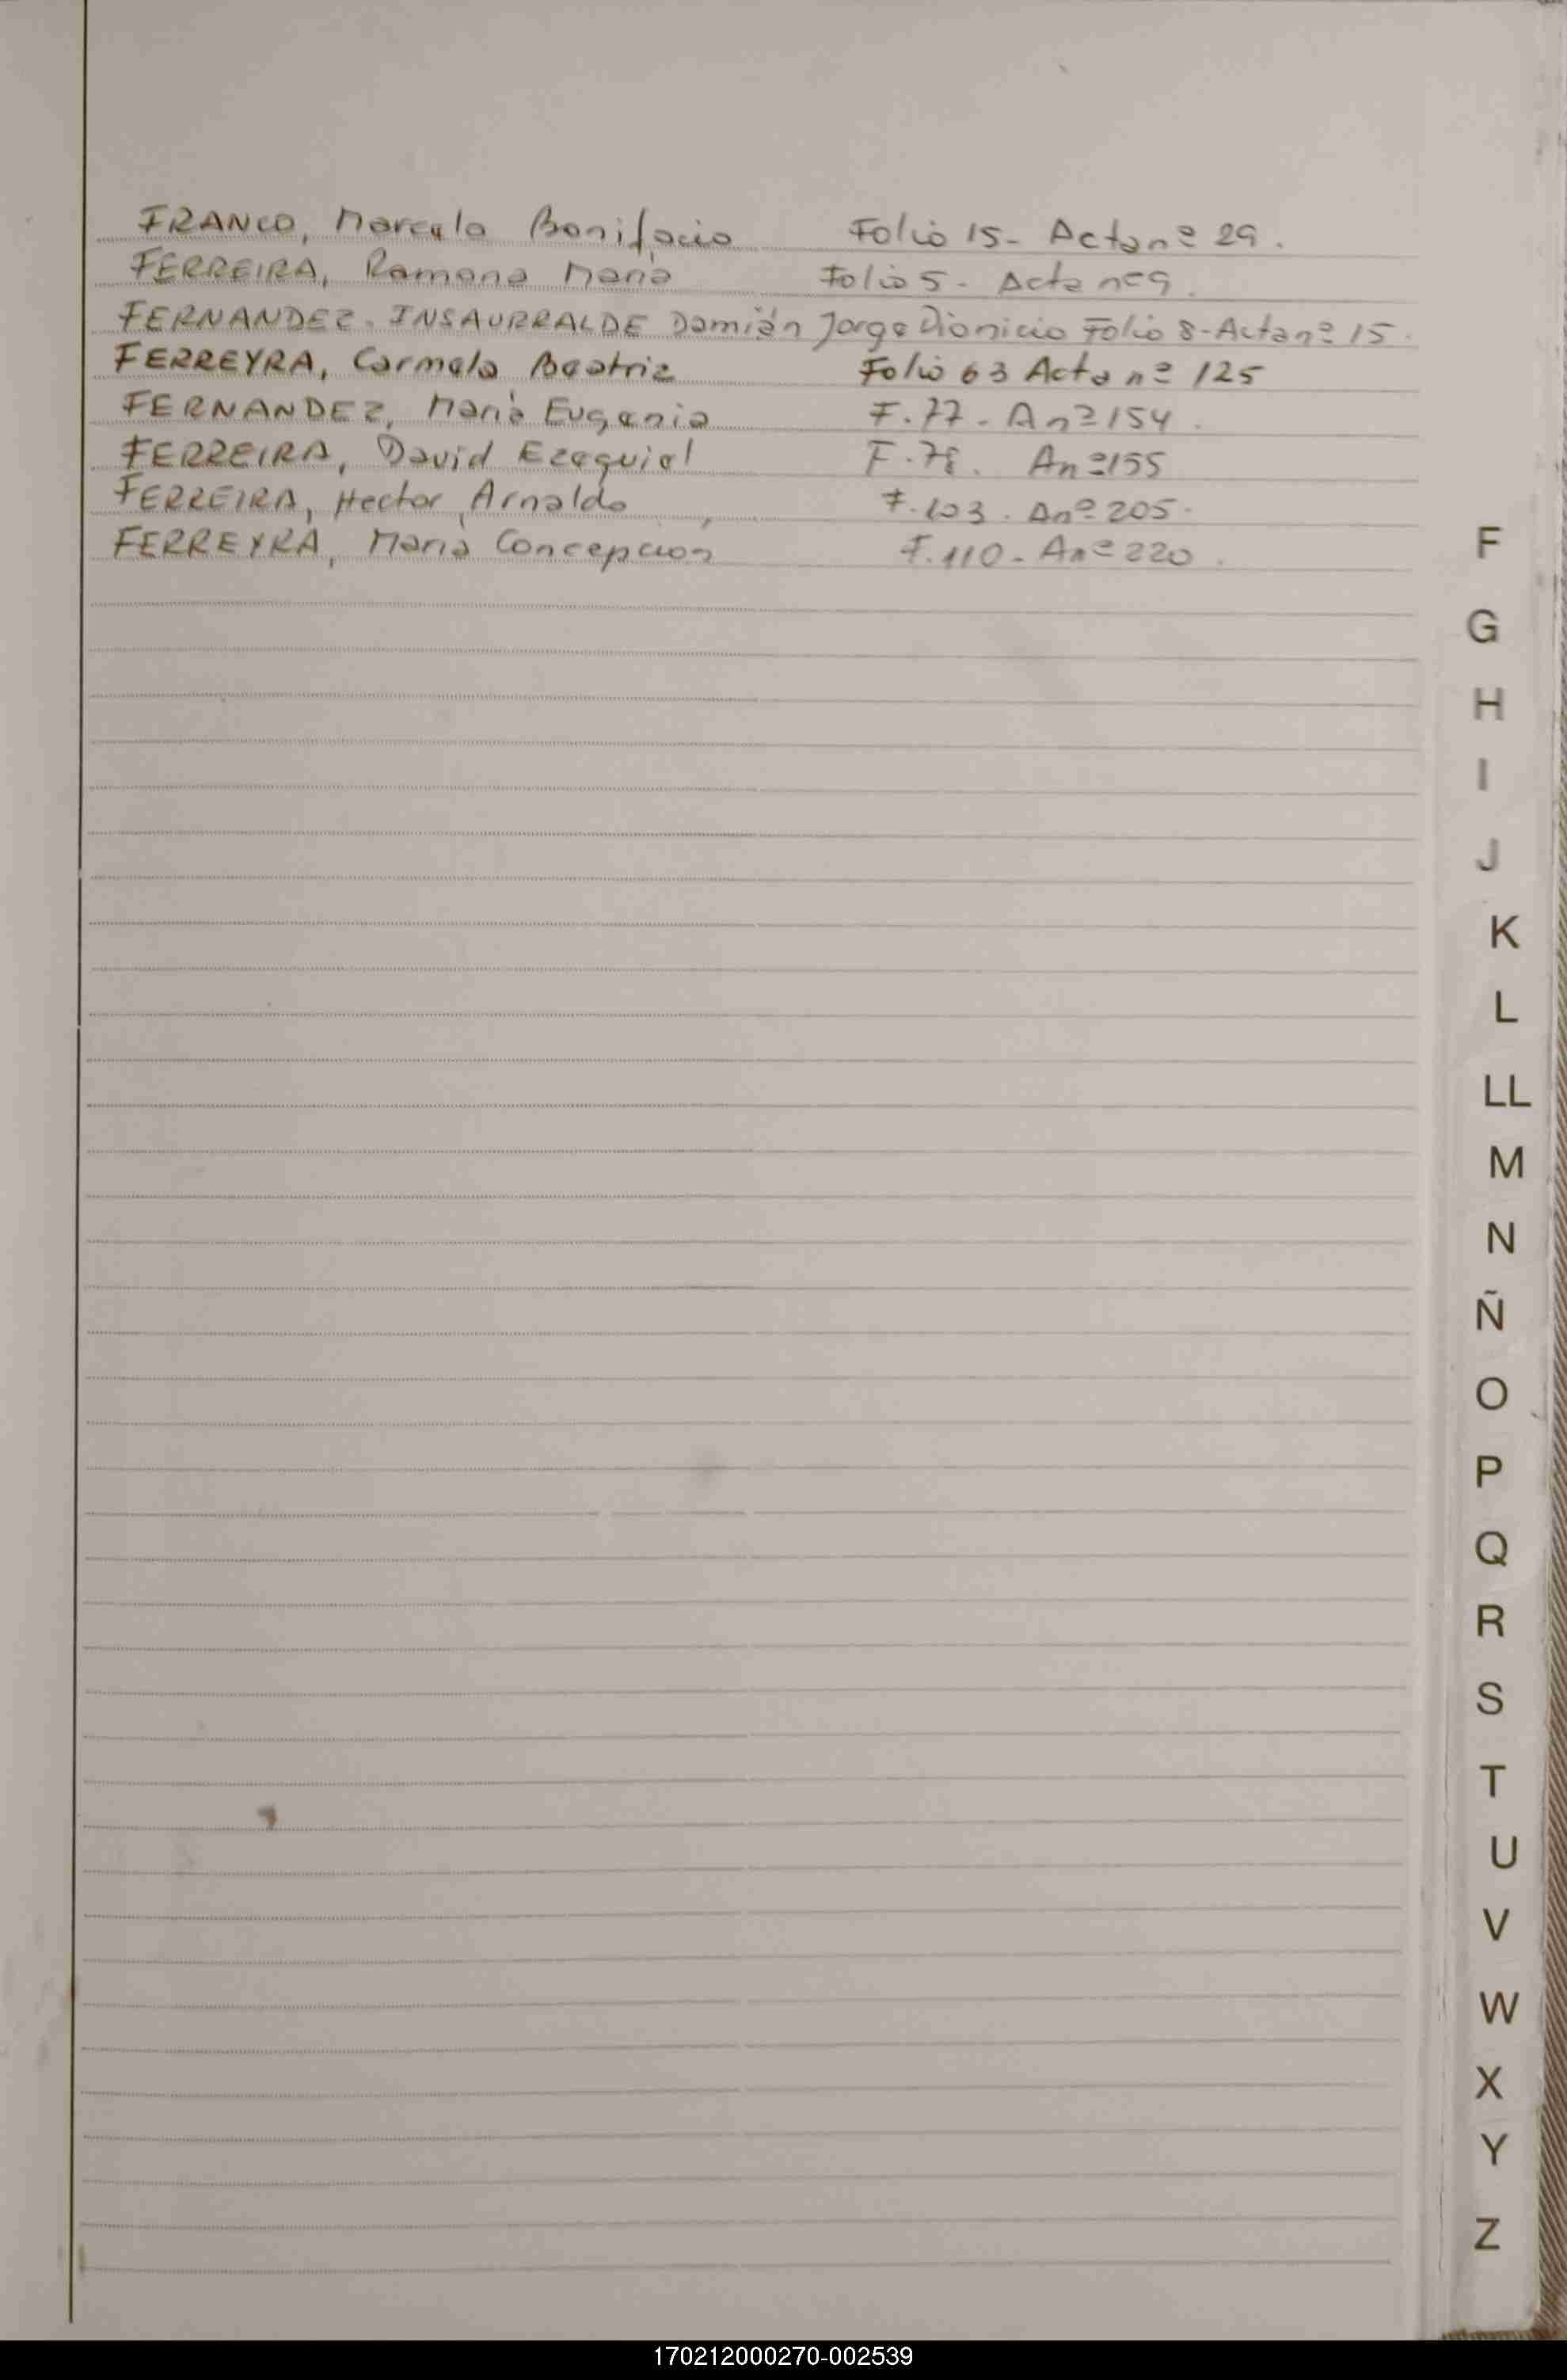 FRANCO, Marcelo Bonifacio Folio 15- Acta nº 29.
FERREIRA, Ramona Maria Folio 5- Acta nº 9.
FERNANDEZ. INSAURRALDE Damián Jorge Dionicio Folio 8-Acta nº 15.
FERREYRA, Carmelo Beatriz Folio 63 Acta nº 125
FERNANDEZ, Maria Eugenia F.77- A nº 154.
FERREIRA, David Ezequiel F.78. A nº 155
FERREIRA, Hector Arnaldo F.103. A nº 205.
FERREYRA, Maria Concepción F.110- A nº 220.
F
G
H
I
J
K
L
LL
M
N
Ñ
O
P
Q
R
S
T
U
V
W
X
Y
Z
170212000270-002539